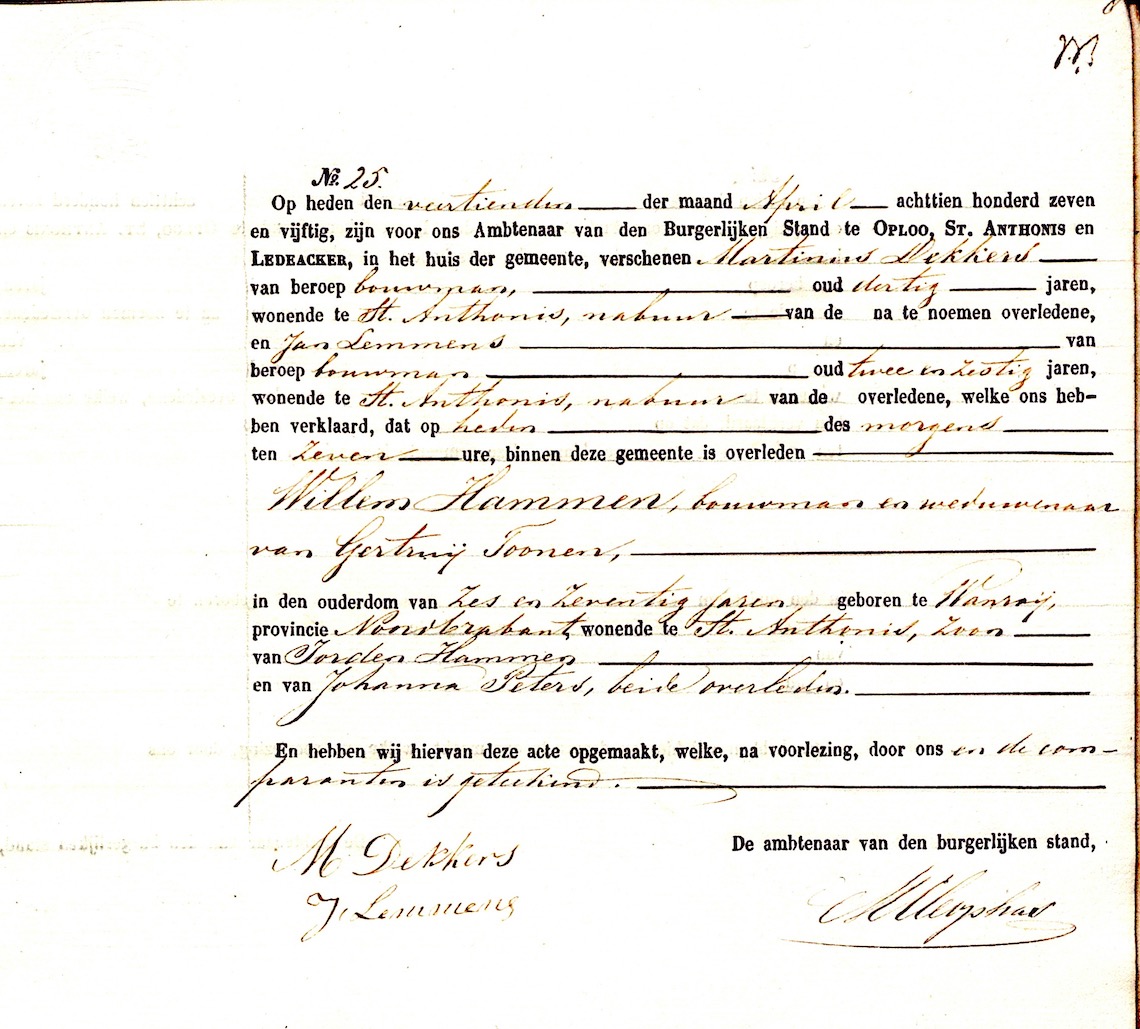 No. 25.
Op heden den veertienden der maand April achttien honderd zeven
en vijftig, zijn voor ons Ambtenaar van den Burgerlijken Stand te OPLOO, ST. ANTHONIS en
LEDEACKER, in het huis der gemeente, verschenen Martinus Dekkers
van beroep bouwman, oud dertig jaren,
wonende te St. Anthonis, nabuur van de na te noemen overledene,
en Jan Lemmens van
beroep bouwman oud twee en zestig jaren,
wonende te St. Anthonis, nabuur van de overledene, welke ons heb-
ben verklaard, dat op heden des morgens
ten zeven ure, binnen deze gemeente is overleden
Willem Hammen, bouwman en weduwenaar
van Gertruij Toonen,
in den ouderdom van zes en zeventig jaren geboren te Wanroij,
provincie Noordbrabant, wonende te St. Anthonis, zoon
van Jorden Hammen
en van Johanna Peters, beide overleden.
En hebben wij hiervan deze acte opgemaakt, welke, na voorlezing, door ons en de com-
paranten is geteekend.
M Dekkers
De ambtenaar van den burgerlijken stand,
J. Lemmens